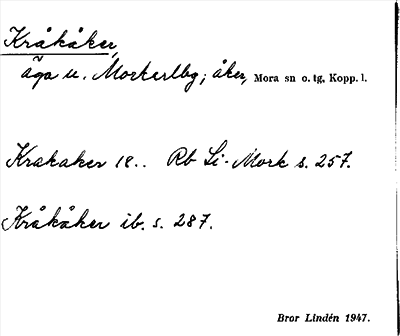 Kråkåker,
äga u. Morkarlbg; åker, Mora sn o. tg, Kopp. l.
Krakaker 18.. Rb Li-Mork s. 257.
Kråkåker ib. s. 287.
Bror Lindén 1947.